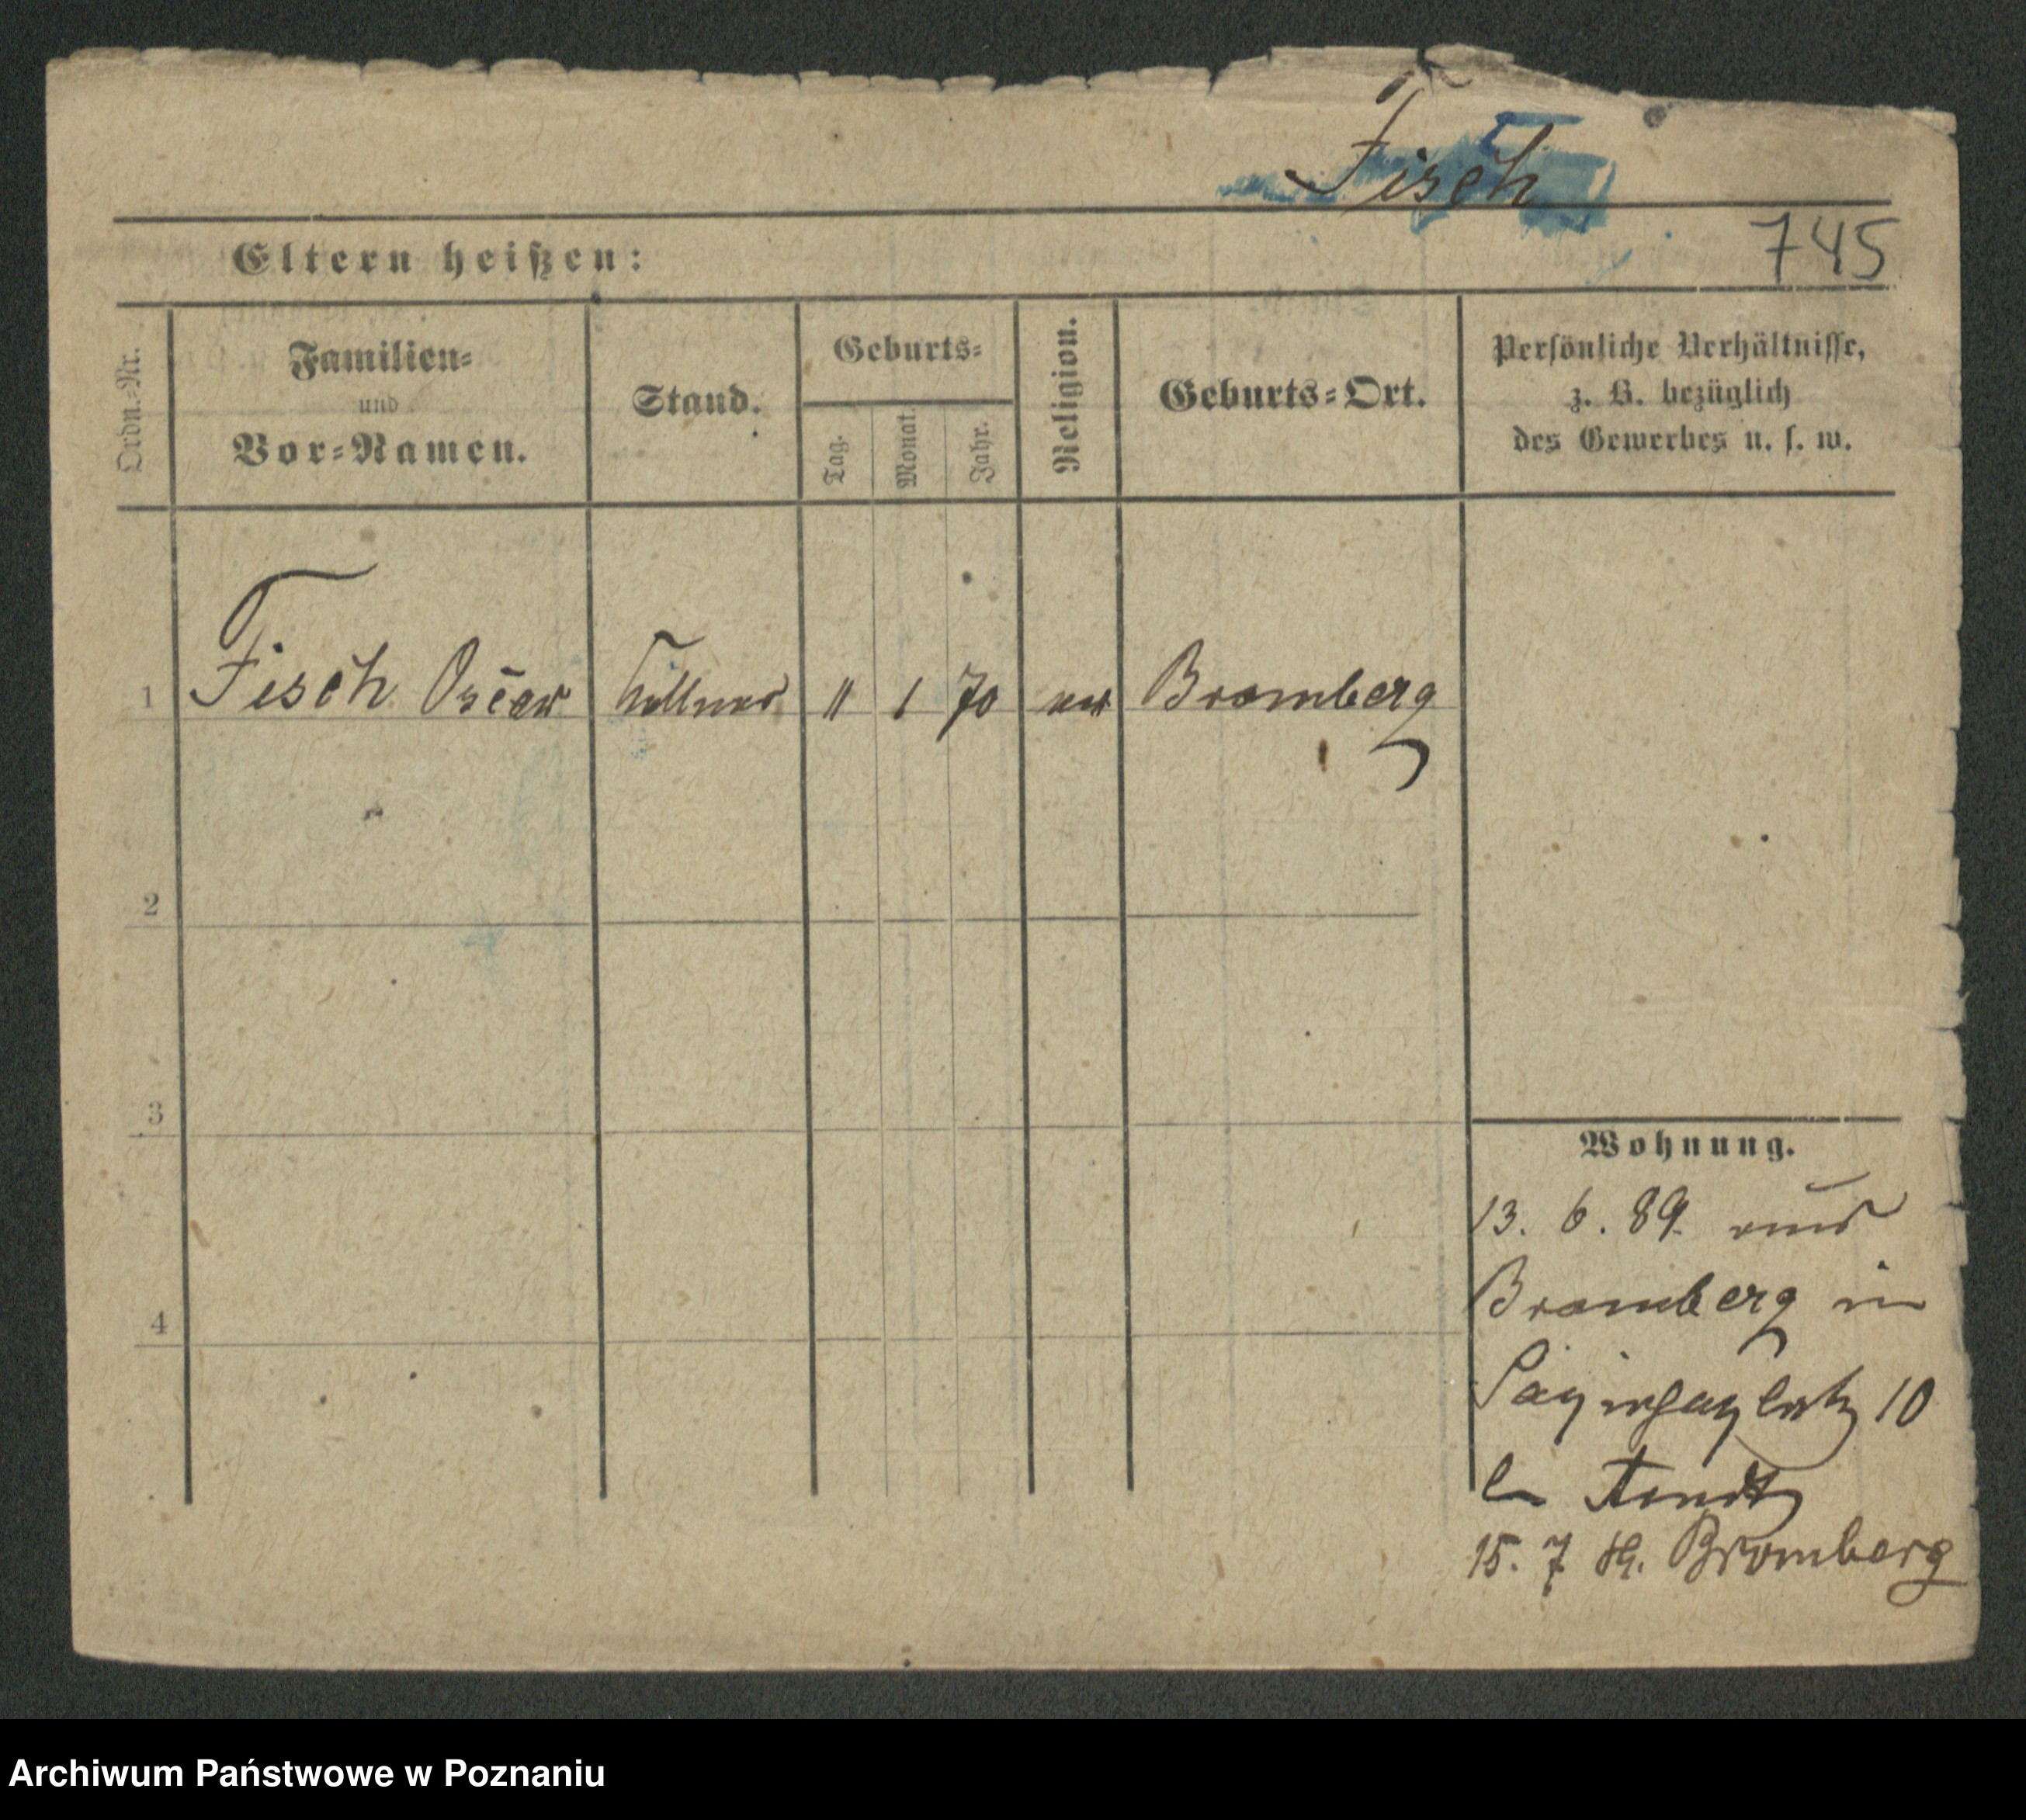 Fisch
Eltern heißen:
745
Ordn.-Nr.
Familien-
und
Vor-Namen.
Stand.
Geburts-
Tag.
Monat.
Jahr.
Religion.
Geburts-Ort.
Persönliche Verhältnisse,
z. B. bezüglich
des Gewerbes u. s. w.
1 Fisch Oscar Kellner 11 1 70 Bromberg
2
3
4
Wohnung.
13. 6. 89. aus
Bromberg in
Sapiehaplatz 10
15. 7. Bromberg
Archiwum Państwowe w Poznaniu